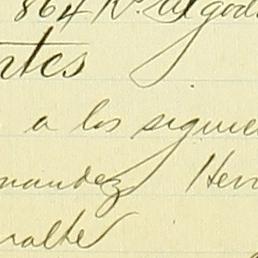 864 Ks. Algodó
ntes
a los siguie
nandez Her
ralte